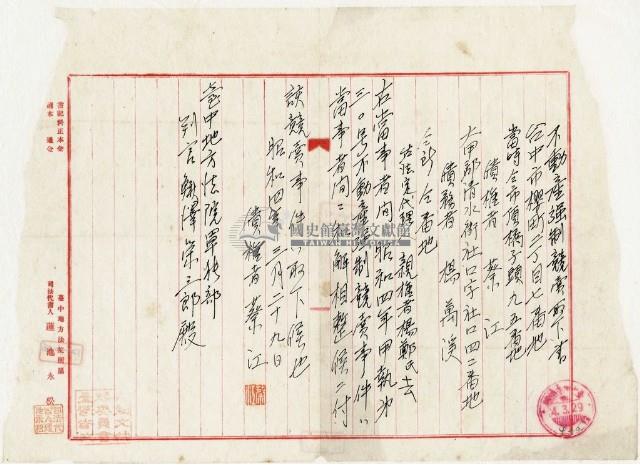 不動産強制競賣取下書
台中市櫻町二丁目七番地
當時仝市頂橋子頭九五番地
債権者 蔡江
大甲郡清水街社口字社口四二番地
債務者 楊萬溪
仝所仝番地
右法定代理 親権者楊鄭氏去
右當事者間ノ昭和四年甲執第
三〇号不動産強制競賣事件ハ
當事者間ニ和解相整候ニ付
該競賣事件ハ取下候也
昭和四年三月二十九日
債権者 蔡江
臺中地方法院單独部
判官 鰺澤榮三郎殿
臺中地方法院所屬
司法代書人 蓮池永松
國史館臺灣文獻館
TAIWAN HISTORICA
4.3.29